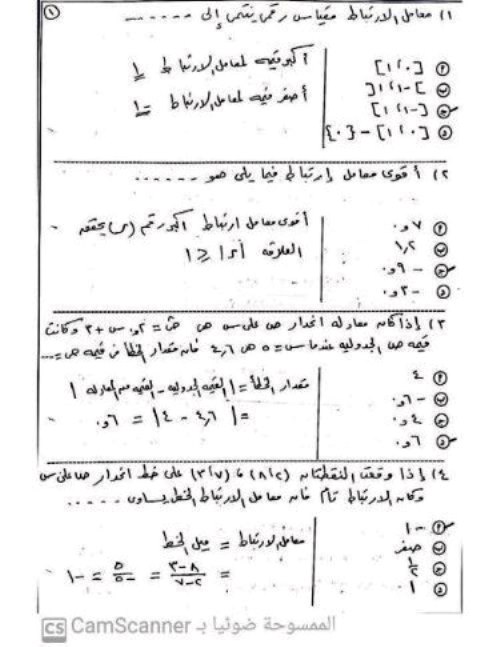 ①
١) معامل الارتباط مقياس رقمى ينتمى إلى ......
أ [٠، ١]
ب ]-١، ١[
ج [-١، ١]
د [٠، ١] - {٠}
أكبر قيمه لمعامل الارتباط = ١
أصغر قيمه لمعامل الارتباط = -١
٢) أقوى معامل إرتباط فيما يلى هو ......
أ ٧و٠
ب ١٫٢
ج -٩و٠
د -٢و٠
أقوى معامل ارتباط أكبر رقم (س) يحققه
العلاقه |س| ≤ ١
٣) إذا كانه معادله انحدار ص على س هى ص = ٢و٠ س + ٣ وكانت
قيمه ص الجدوليه عندما س = ٥ هى ٤٫٦ فانه مقدار الخطأ فى قيمه ص = ...
أ ٤
ب -٦و٠
ج ٤و٠
د ٦و٠
مقدار الخطأ = | القيمه الجدوليه - القيمه من المعادله |
= | ٤٫٦ - ٤ | = ٦و٠
٤) إذا وقعت النقطتانه (٢، ٨) ، (٧، ٣) على خط انحدار ص على س
وكانه الارتباط تام فانه معامل الارتباط الخطى يساوى ......
أ -١
ب صفر
ج ١/٢
د ١
معامل الارتباط = ميل الخط
= ٨-٣ / ٢-٧ = ٥ / -٥ = -١
CS CamScanner الممسوحة ضوئيا بـ